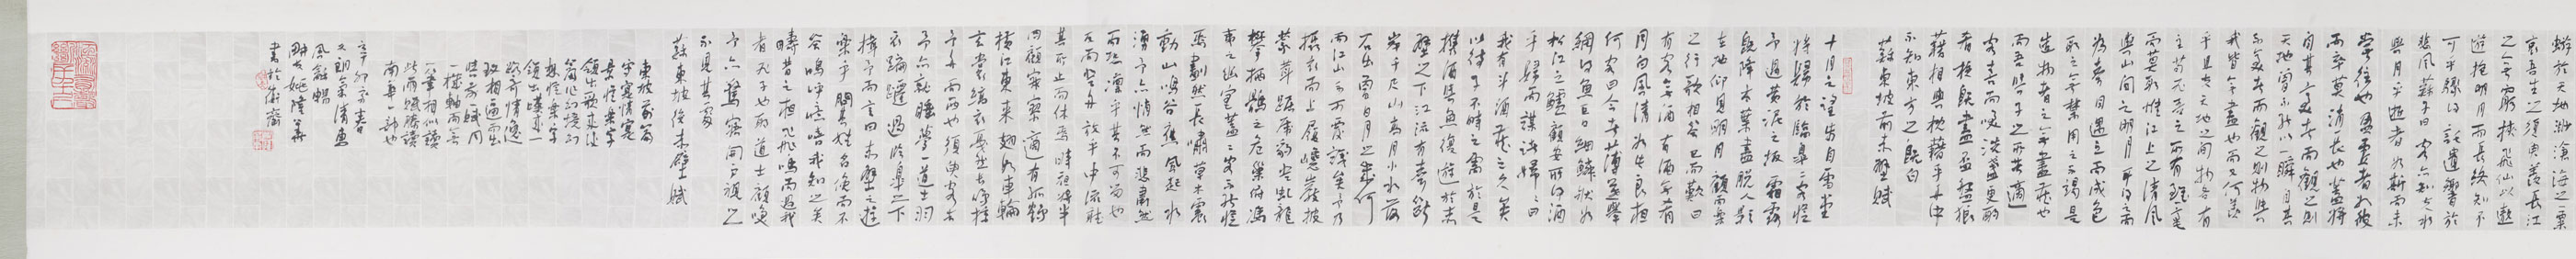 蝣於天地渺滄海之一粟
哀吾生之須臾羨長江
之無窮挾飛仙以遨
遊抱明月而長終知不
可乎驟得託遺響於
悲風蘇子曰客亦知夫水
與月乎逝者如斯而未
嘗往也盈虛者如彼
而卒莫消長也蓋將
自其變者而觀之則
天地曾不能以一瞬自其
不變者而觀之則物與
我皆無盡也而又何羨
乎且夫天地之間物各有
主苟非吾之所有雖一毫
而莫取惟江上之清風
與山間之明月耳得之而
為聲目遇之而成色
取之無禁用之不竭是
造物者之無盡藏也
而吾與子之所共適
客喜而笑洗盞更酌
肴核既盡杯盤狼
藉相與枕藉乎舟中
不知東方之既白
蘇東坡前赤壁賦
十月之望步自雪堂
將歸於臨皋二客從
予過黃泥之坂霜露
既降木葉盡脫人影
在地仰見明月顧而樂
之行歌相答已而歎曰
有客無酒有酒無肴
月白風清如此良夜
何客曰今者薄暮舉
網得魚巨口細鱗狀如
松江之鱸顧安所得酒
乎歸而謀諸婦婦曰
我有斗酒藏之久矣
以待子不時之需於是
攜酒與魚復遊於赤
壁之下江流有聲斷
岸千尺山高月小水落
石出曾日月之幾何
而江山不可復識矣予乃
攝衣而上履巉巖披
蒙茸踞虎豹登虬龍
攀栖鶻之危巢俯馮
夷之幽宮蓋二客不能從
焉劃然長嘯草木震
動山鳴谷應風起水
湧予亦悄然而悲肅然
而恐凜乎其不可留也
反而登舟放乎中流聽
其所止而休焉時夜將半
四顧寂寥適有孤鶴
橫江東來翅如車輪
玄裳縞衣戛然長鳴掠
予舟而西也須臾客去
予亦就睡夢一道士羽
衣蹁躚過臨皋之下
揖予而言曰赤壁之遊
樂乎問其姓名俛而不
答嗚呼噫嘻我知之矣
疇昔之夜飛鳴而過我
者非子也耶道士顧笑
予亦驚寤開戶視之
不見其處
蘇東坡後赤壁賦
東坡前篇
辛卯
又朗氣清惠
風龢暢